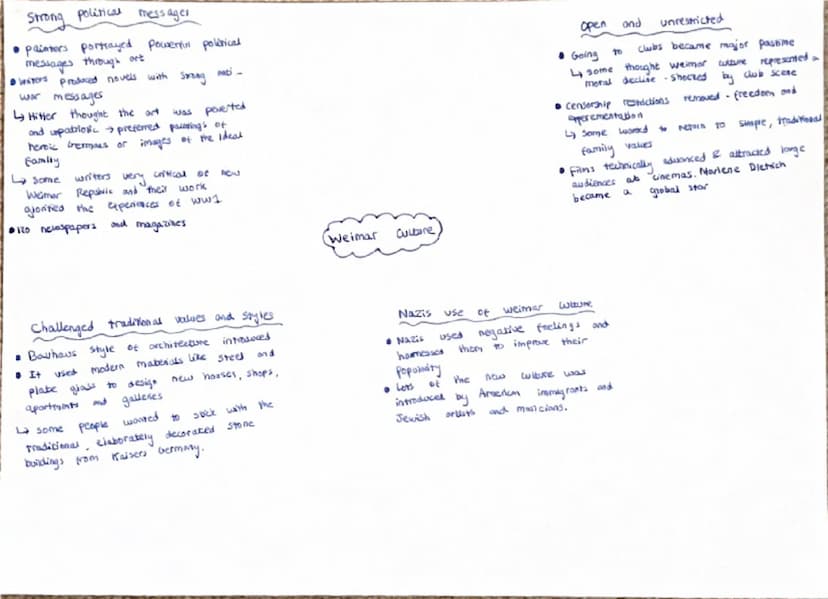 Strong political messages
• painters portrayed powerful political
messages through art
• Writers produced novels with strong anti-
war messages
↳ Hitler thought the art was perverted
and unpatriotic → preferred paintings of
heroic Germans or images of the ideal
family
↳ Some writers very critical of new
Weimar Republic and their work
glorified the experiences of WW1
• 120 newspapers and magazines
Open and unrestricted
• Going to clubs became major pastime
↳ some thought Weimar culture represented a
moral decline - shocked by club scene
• Censorship restrictions removed - freedom and
experimentation
↳ Some wanted to return to simple, traditional
family values
• Films technically advanced & attracted large
audiences at cinemas. Marlene Dietrich
became a global star
Weimar Culture
Challenged traditional values and styles
• Bauhaus style of architecture introduced
• It used modern materials like steel and
plate glass to design new houses, shops,
apartments and galleries
↳ some people wanted to stick with the
traditional, elaborately decorated stone
buildings from Kaisers Germany.
Nazis use of Weimar Culture
• Nazis used negative feelings and
harnessed them to improve their
popularity
• Lots of the new culture was
introduced by American immigrants and
Jewish artists and musicians.